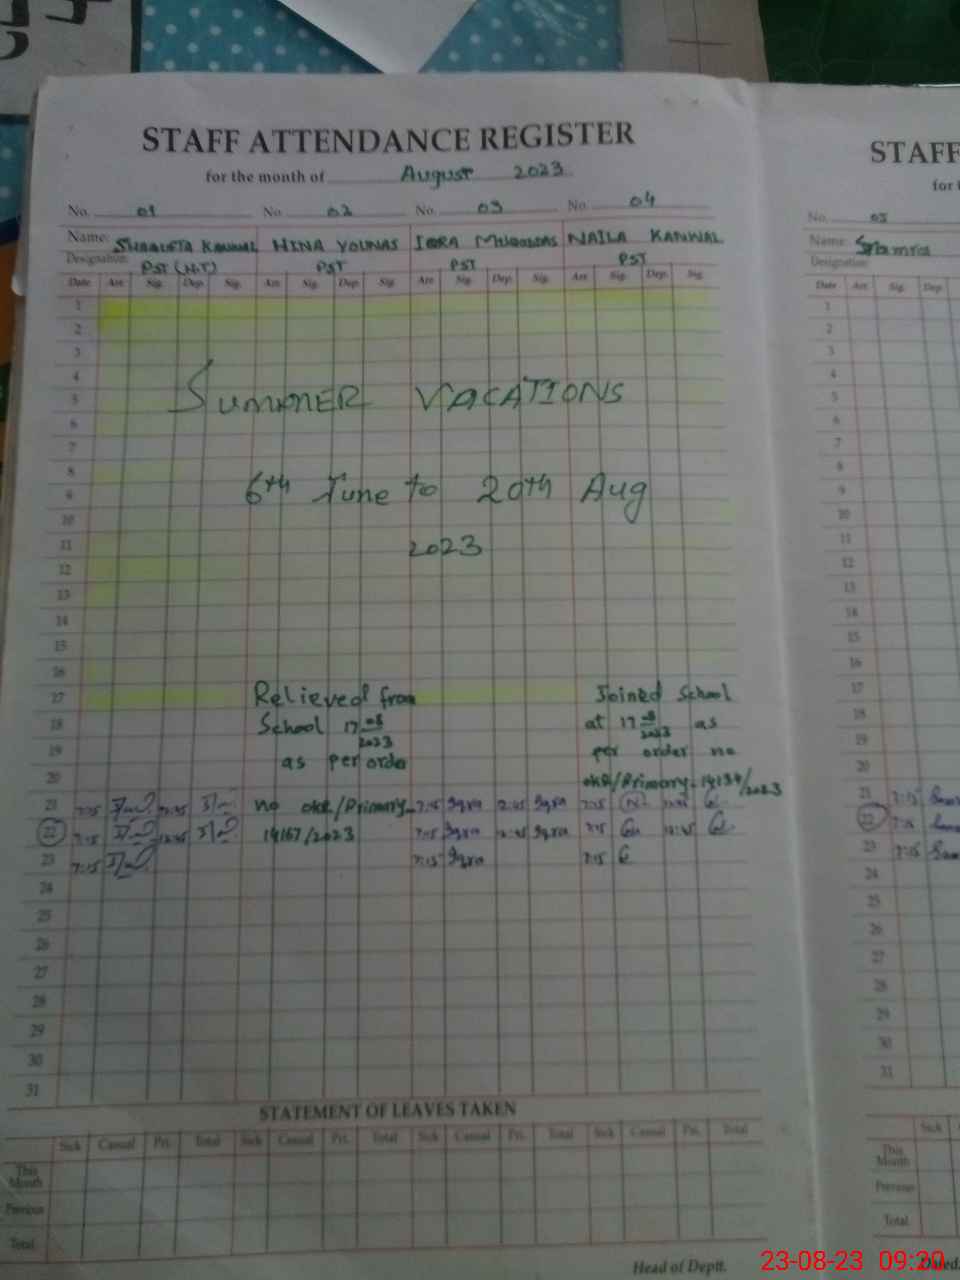 STAFF ATTENDANCE REGISTER
for the month of August 2023
No. 01 No. 02 No. 03 No. 04
Name: HINA YOUNAS NAILA KANWAL
Designation: PST (H.T) PST PST PST
Date Arr. Sig. Dep. Sig. Arr. Sig. Dep. Sig. Arr. Sig. Dep. Sig. Arr. Sig. Dep. Sig.
1
2
3
4
5
6
7
8
9
10
11
12
13
14
15
16
17
18
19
20
21
22
23
24
25
26
27
28
29
30
31
SUMMER VACATIONS
6th June to 20th Aug
2023
Relieved from
School 17 08
2023
as per orde
no okr/Primary-
14167/2023
Joined School
at 17 08 as
2023
per order no
okr/Primary-14134/2023
7:15 12:45 7:15 Iqra 12:45 Iqra 7:15 12:45
7:15 12:45 7:15 Iqra 12:45 Iqra 7:15 12:45
7:15 7:15 Iqra 7:15
STATEMENT OF LEAVES TAKEN
Sick Casual Pri. Total Sick Casual Pri. Total Sick Casual Pri. Total Sick Casual Pri. Total
This Month
Previous
Total
Head of Deptt.
STAFF
for
No. 05
Name:
Designation:
Date Arr. Sig. Dep.
1
2
3
4
5
6
7
8
9
10
11
12
13
14
15
16
17
18
19
20
21 7:15
22 7:15
23 7:15
24
25
26
27
28
29
30
31
Sick
This Month
Previous
Total
Dated.
23-08-23 09:20